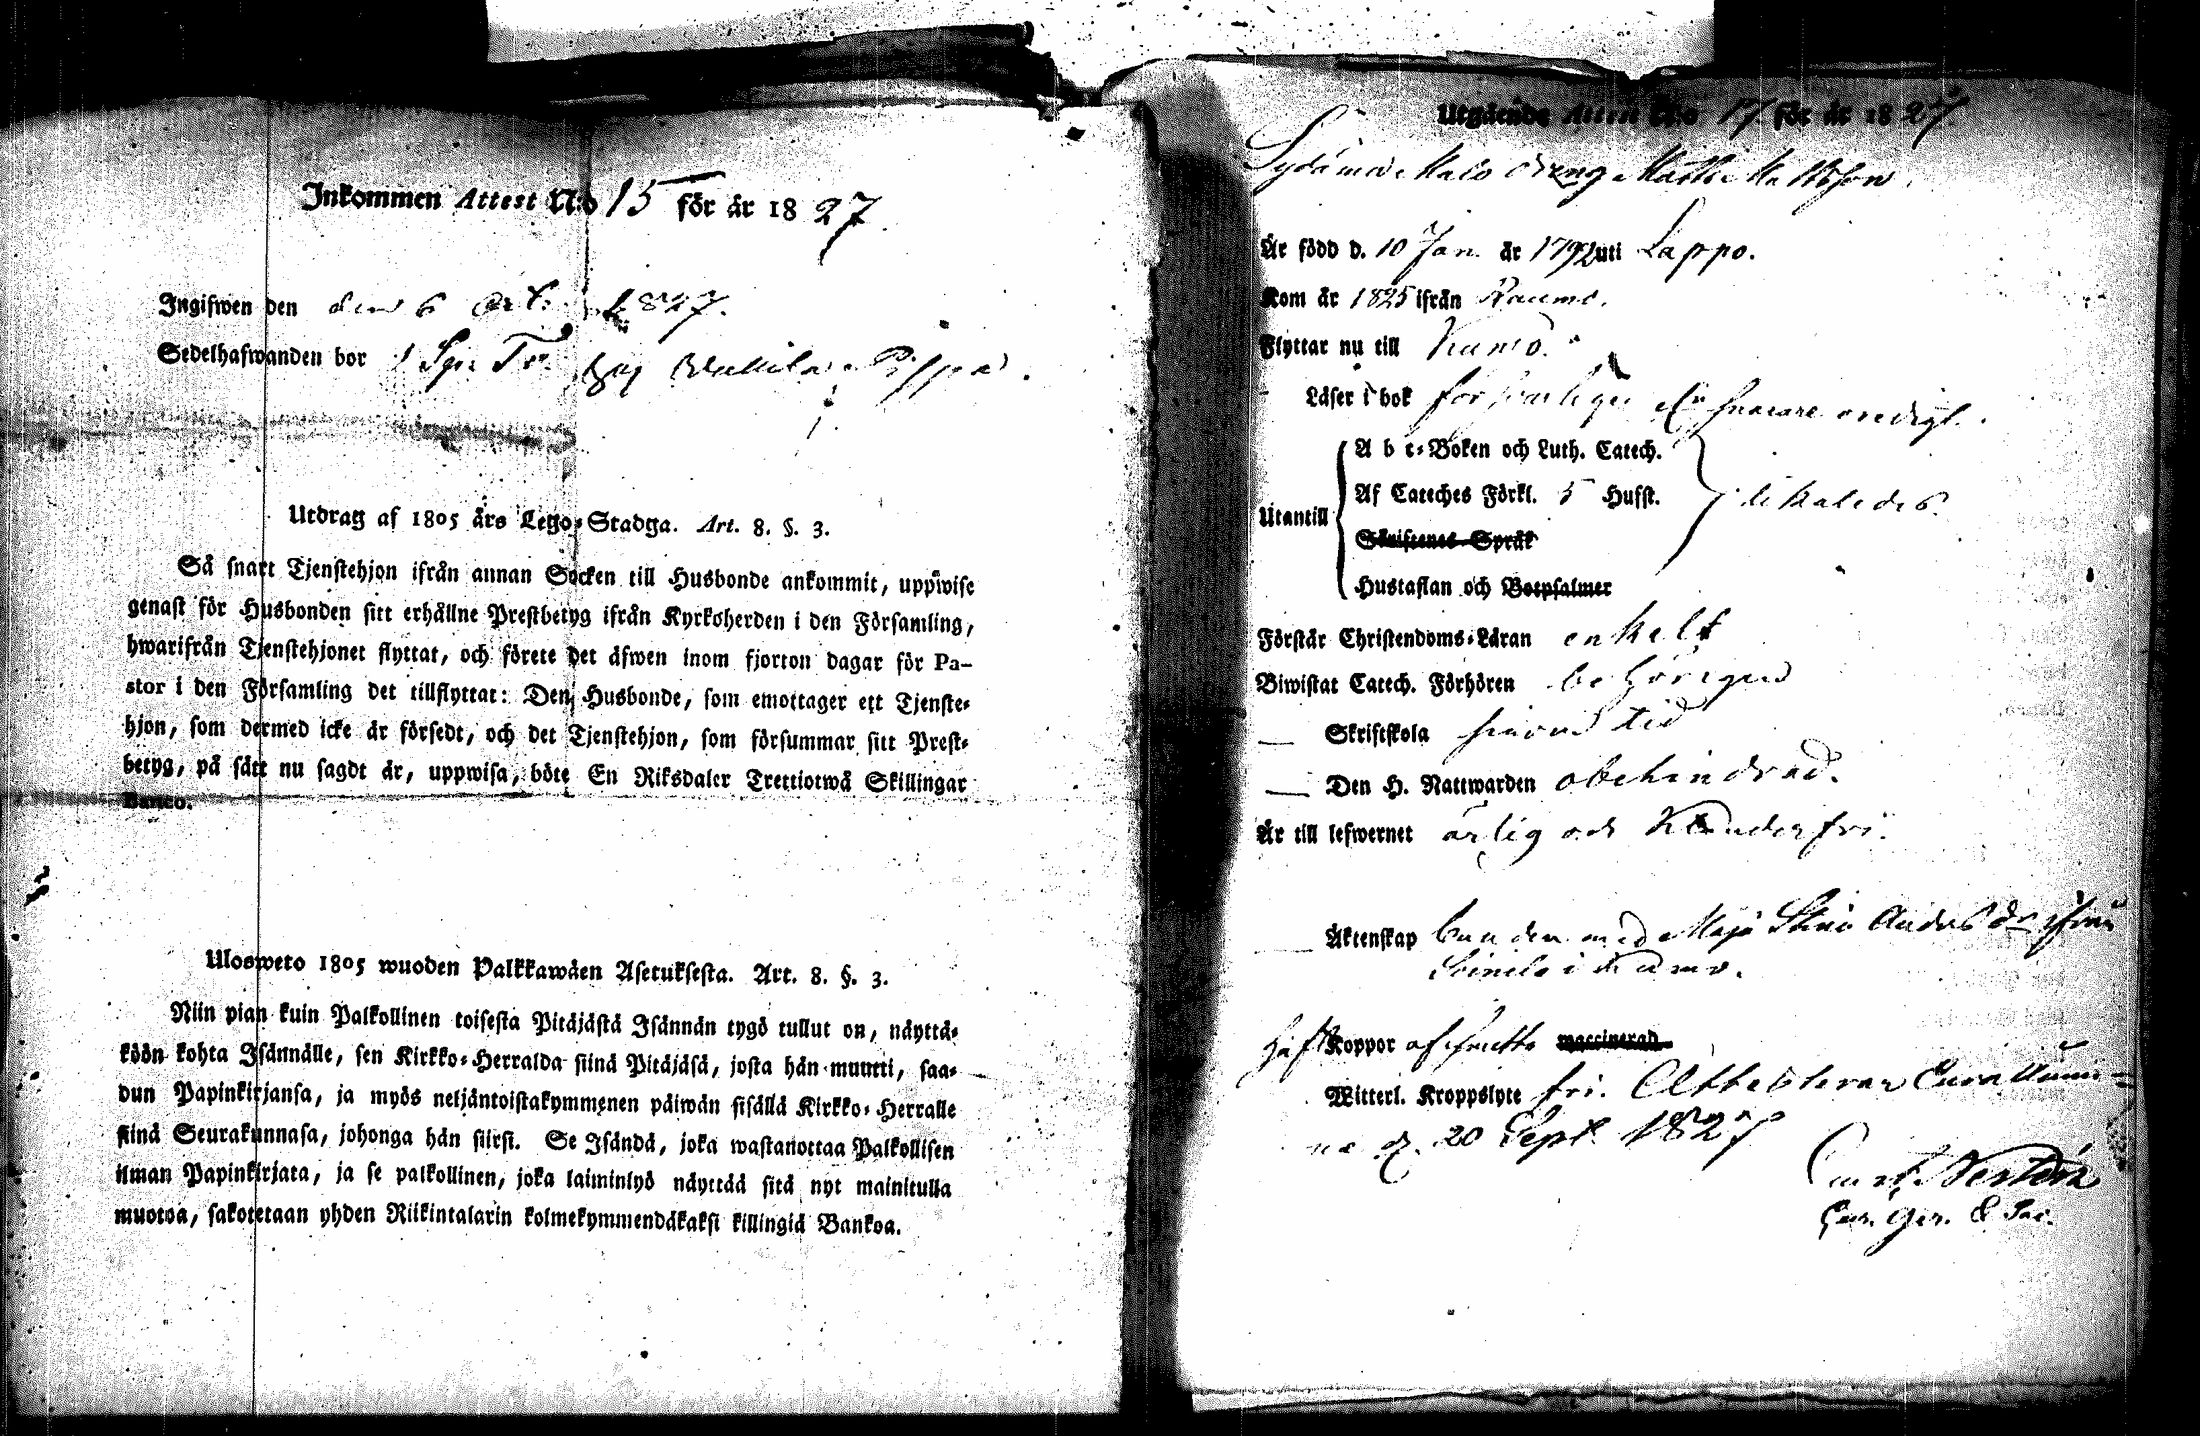 Inkommen Attest N:o 15 för år 1827
Ingifwen den den 6 Oct. 1827.
Sedelhafwanden bor
Utdrag af 1805 års Lego-Stadga. Art. 8. §. 3.
Så snart Tjenstehjon ifrån annan Socken till Husbonde ankommit, uppwise
genast för Husbonden sitt erhållne Prestbetyg ifrån Kyrkoherden i den Församling,
hwarifrån Tjenstehjonet flyttat, och förete det äfwen inom fjorton dagar för Pa-
stor i den Församling det tillflyttat: Den Husbonde, som emottager ett Tjenste-
hjon, som dermed icke är försedt, och det Tjenstehjon, som försummar sitt Prest-
betyg, på sätt nu sagdt är, uppwisa, böte En Riksdaler Trettiotwå Skillingar
Banco.
Ulosweto 1805 wuoden Palkkawäen Asetuksesta. Art. 8. §. 3.
Niin pian kuin Palkollinen toisesta Pitäjästä Isännän tygö tullut on, näyttä-
köön kohta Isännälle, sen Kirkko-Herralda siinä Pitäjäsä, josta hän muutti, saa-
dun Papinkirjansa, ja myös neljäntoistakymmenen päiwän sisällä Kirkko-Herralle
siinä Seurakunnasa, johonga hän siirsi. Se Isändä, joka wastanottaa Palkollisen
ilman Papinkirjata, ja se palkollinen, joka laiminlyö näyttää sitä nyt mainitulla
muotoa, sakotetaan yhden Riikintalarin kolmekymmendäkaksi killingiä Bankoa.
Utgående Attest N:o 17 för år 1827
dreng Matts Mattsson
År född d. 10 Jan. år 1792 uti Lappo.
Kom år 1825 ifrån Raumo.
Flyttar nu till Kumo.
Läser i bok försvarligen
A b c-Boken och Luth. Catech.
Af Cateches Förkl. 5 Husst. likaledes.
Utantill
Skriftenes Språk
Hustaflan och Botpsalmer
Förstår Christendoms-Läran enkelt
Biwistat Catech. Förhören behörigen
— Skriftskola sinom tid
— Den H. Nattwarden obehindrad.
Är till lefwernet ärlig och
— Äktenskap bunden med Maja Stina Anders dr ifrån
i Kumo.
Haft Koppor waccinerad
Witterl. Kroppslyte fri. Attesterar
d. 20 Sept. 1827